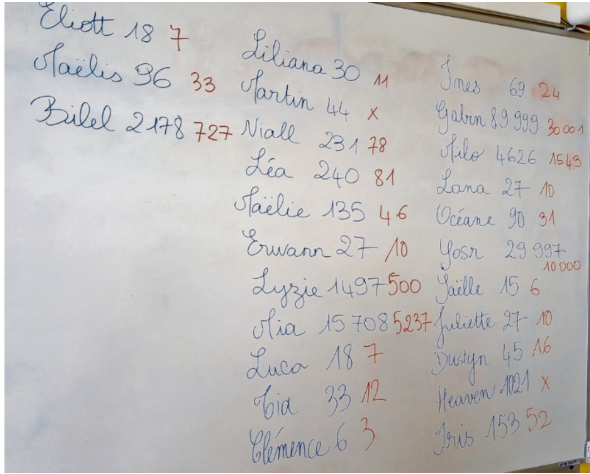 Eliott 18 7
Maëlis 96 33
Bilel 2178 727
Liliana 30 11
Martin 44 x
Niall 231 78
Léa 240 81
Maëlie 135 46
Erwann 27 10
Lyzie 1497 500
Mia 15 708 5237
Luca 18 7
Tia 33 12
Clémence 6 3
Ines 69 24
Gabin 89 999 30 001
Milo 4626 1543
Lana 27 10
Océane 90 31
Yosr 29 997
10 000
Jaëlle 15 6
Juliette 27 10
Dustyn 45 16
Heaven 1021 x
Iris 153 52